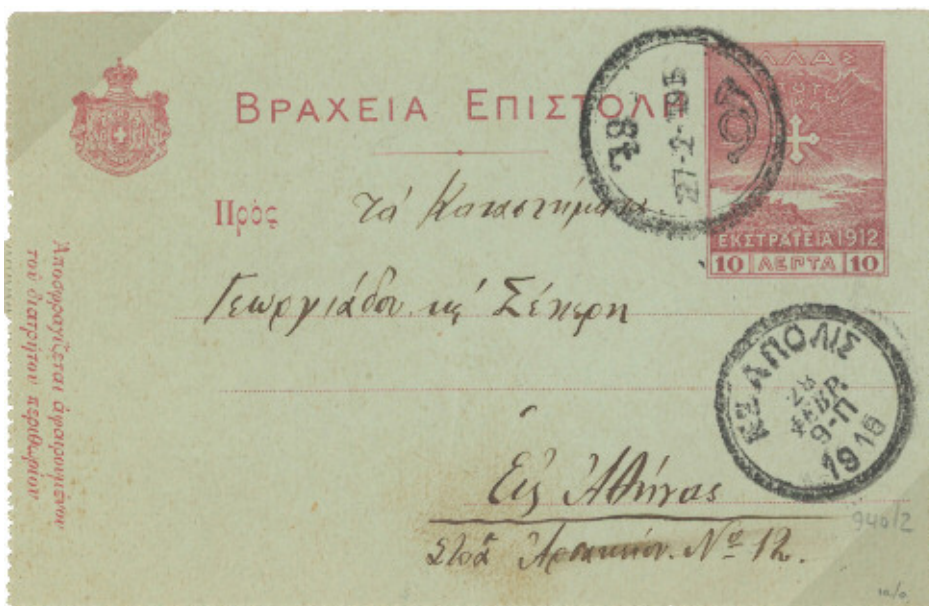 ΒΡΑΧΕΙΑ ΕΠΙΣΤΟΛΗ
ΕΛΛΑΣ
ΕΚΣΤΡΑΤΕΙΑ 1912
10 ΛΕΠΤΑ 10
28
27-2-
Πρὸς τὰ Καταστήματα
Γεωργιάδου κ Σέκερη
Εἰς Ἀθήνας
Στοὰ Ἀρσακείου. Νο 12.
ΑΠΟΛΙΣ
28
ΦΕΒΡ
9-Π
1915
940/2
Ἀποσφραγίζεται ἀφαιρουμένου
τοῦ διατρήτου περιθωρίου